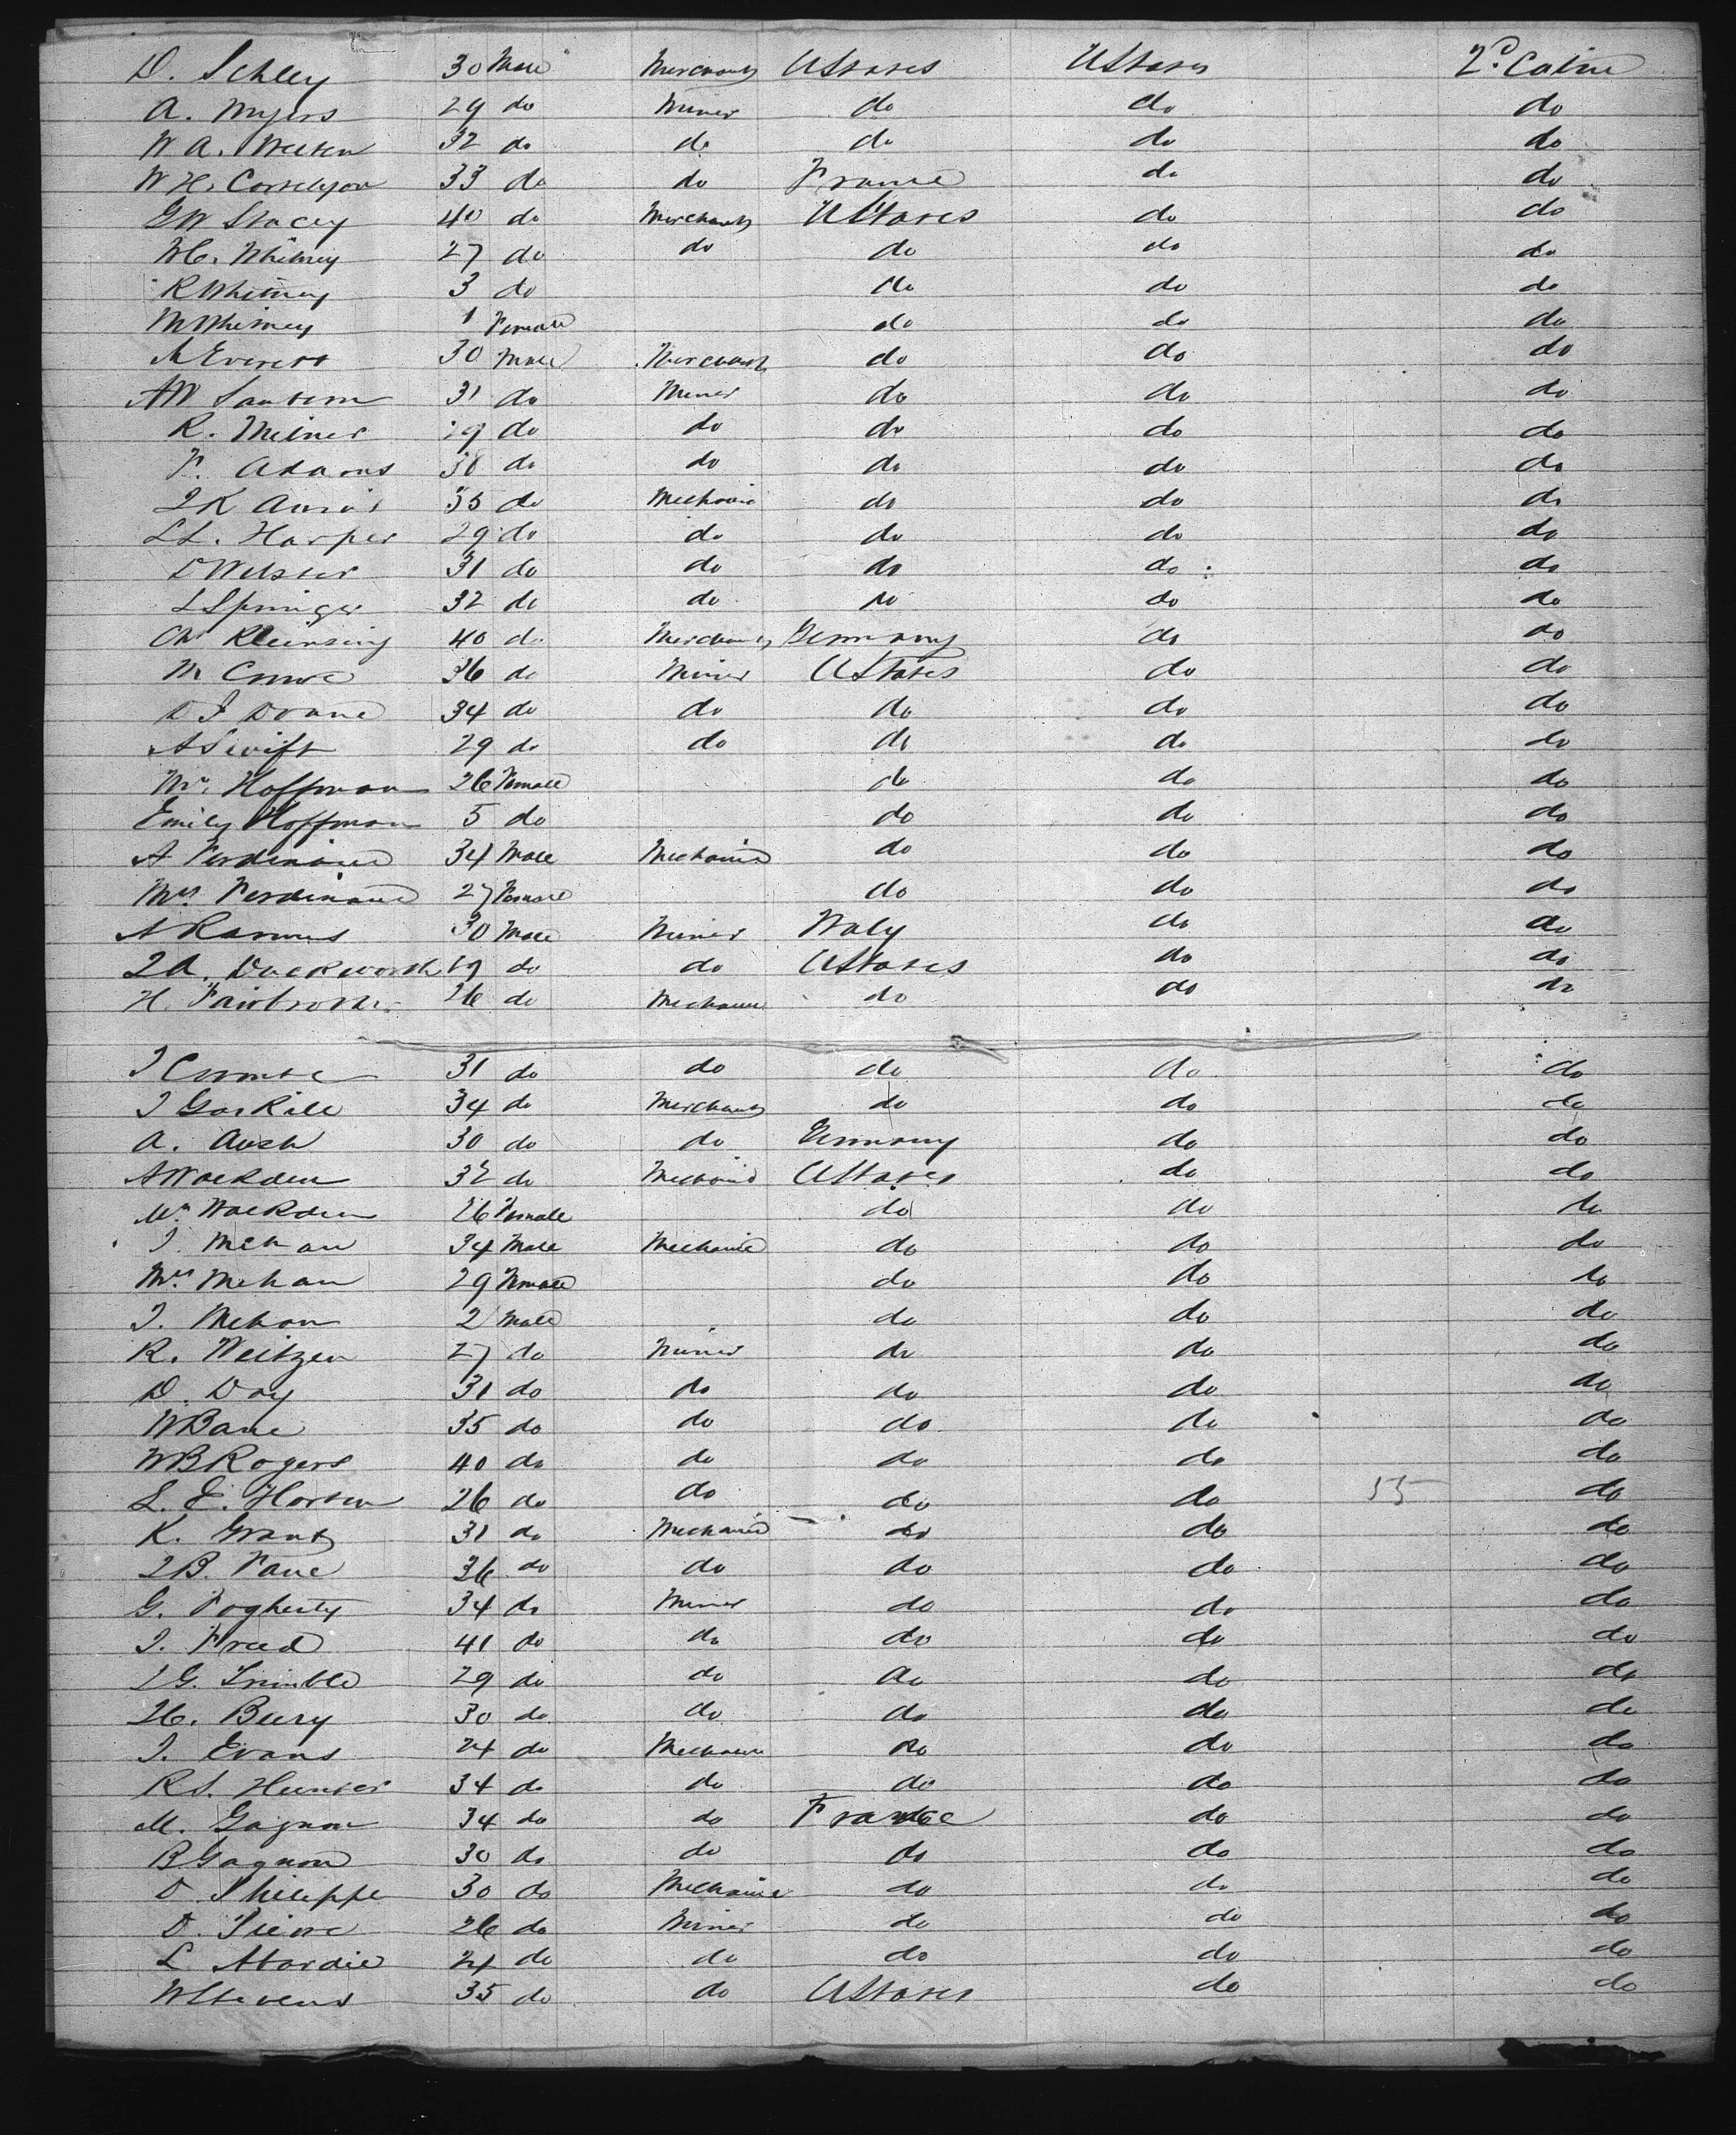 D. Schley 30 Male Merchant UStates UStates 2d Cabin
A. Myers 29 do Miner do do do
W A. 32 do do do do do
W H. 33 do do France do do
GW Stacey 40 do Merchant UStates do do
Whitney 27 do do do do do
R Whitney 3 do do do do
M Whitney 1 Female do do do
Everett 30 Male Merchant do do do
AW 31 do Miner do do do
R. Milner 29 do do do do do
F. Adams 30 do do do do do
35 do Mechanic do do do
S L. Harper 29 do do do do do
D Webster 31 do do do do do
L Springer 32 do do do do do
40 do Merchant Germany do do
M 36 do Miner UStates do do
D J Doane 34 do do do do do
A Swift 29 do do do do do
Mrs Hoffman 26 Female do do do
Emily Hoffman 5 do do do do
A Ferdinand 34 Male Mechanic do do do
Mrs Ferdinand 27 Female do do do
A 30 Male Miner Italy do do
Duckworth 19 do do UStates do do
H. Fairbrother 26 do Mechanic do do do
31 do do do do do
J Gaskill 34 do Merchant do do do
A. 30 do do Germany do do
A Walkden 32 do Mechanic UStates do do
Mrs Walkden 26 Female do do do
J. Mehan 34 Male Mechanic do do do
Mrs Mehan 29 Female do do do
J. Mehan 2 Male do do do
R. Weitzen 27 do Miner do do do
D. Day 31 do do do do do
W Bane 35 do do do do do
WB Rogers 40 do do do do do
L. E. Horton 26 do do do do 55 do
K. Grant 31 do Mechanic do do do
Fane 36 do do do do do
G. Fogherty 34 do Miner do do do
J. Freed 41 do do do do do
G. Trimble 29 do do do do do
Beery 30 do do do do do
J. Evans 24 do Mechanic do do do
R S. Hunter 34 do do do do do
M. Gagnon 34 do do France do do
B Gagnon 30 do do do do do
D. Philippe 30 do Mechanic do do do
D. Pierre 26 do Miner do do do
L Abardie 24 do do do do do
W Stevens 35 do do UStates do do